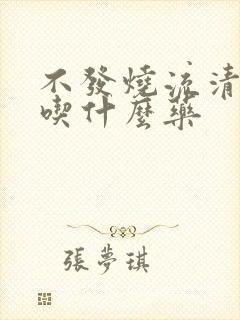 不發燒流清
喫什麼藥
張夢琪